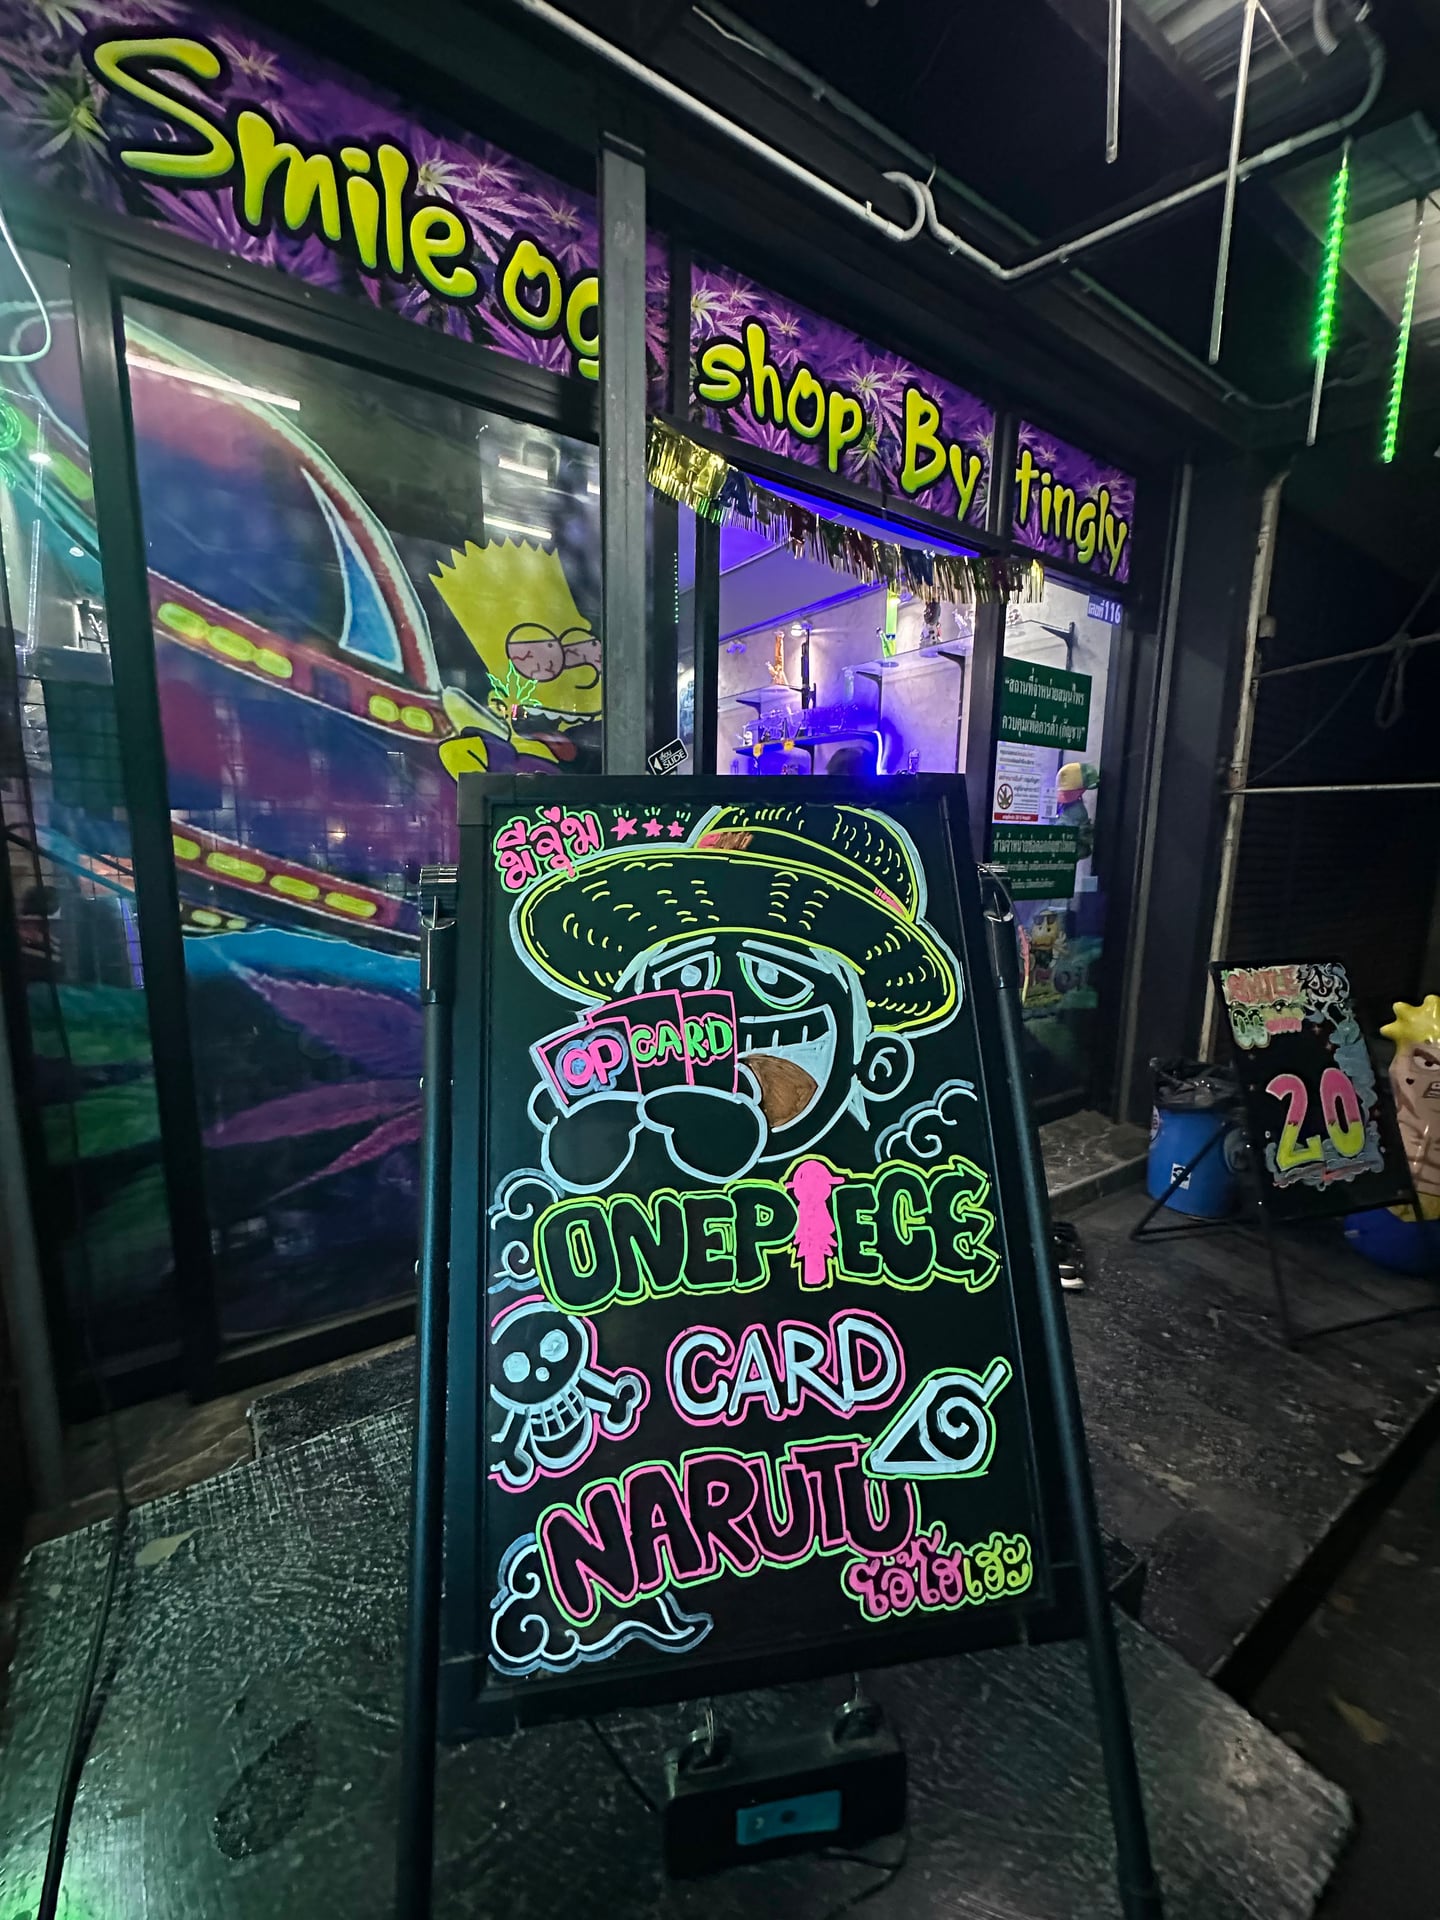 Smile og shop By tingly
เลขที่ 116
"สถานที่จำหน่ายสมุนไพร
ควบคุมเพื่อการค้า (กัญชา)"
เลื่อน
SLIDE
มีจุ่ม
OP CARD
ONEPIECE
CARD
NARUTO
โอ้โฮเฮะ
SMILE
OG
20